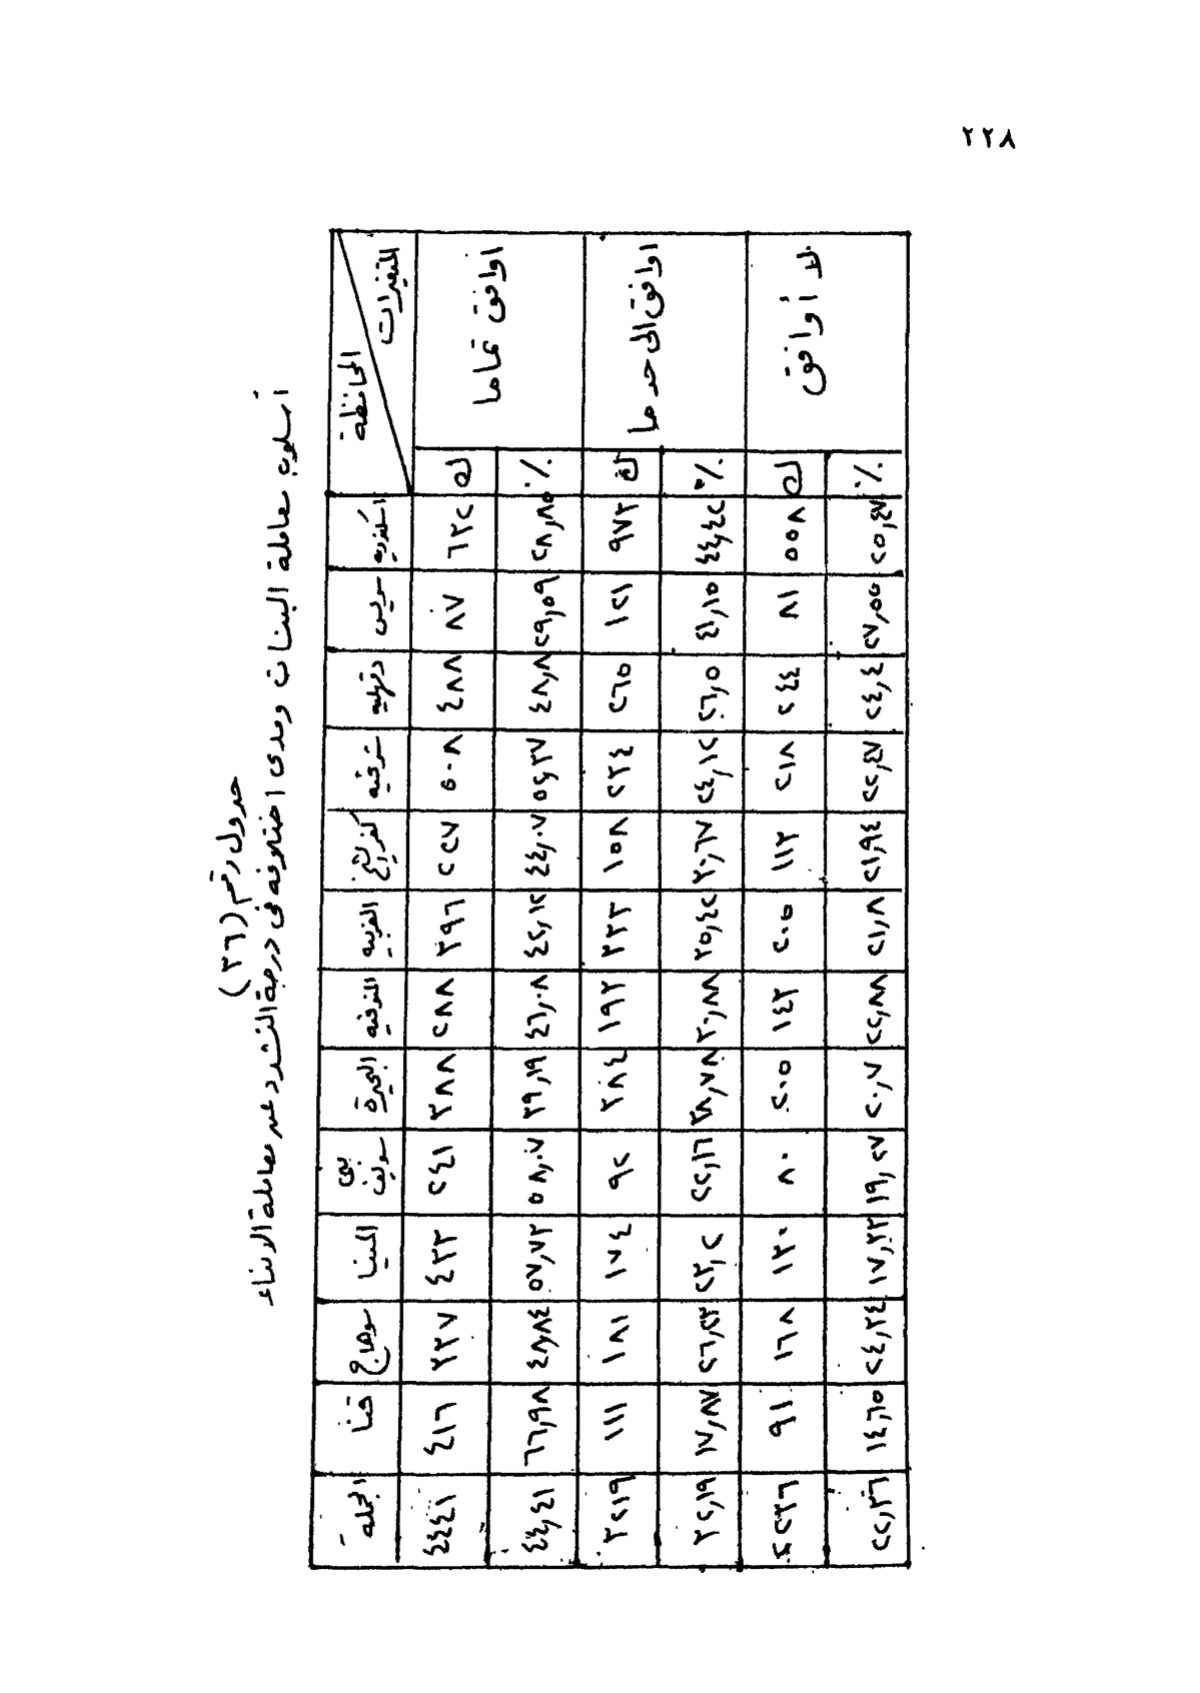 ٢٢٨
جدول رقم (٣٦)
أسلوب معاملة البنات ومدى اختلافه فى درجة التشدد عند معاملة الابناء
المتغيرات
المحافظة اسكندرية سويس دقهلية شرقية كفر الشيخ الغربية المنوفية البحيرة بنى سويف المنيا سوهاج قنا الجملة
اوافق تماما
ك ٦٣٢ ٨٧ ٤٨٨ ٥٠٨ ٢٢٧ ٣٩٦ ٢٨٨ ٣٨٨ ٢٤١ ٤٣٣ ٣٣٧ ٤١٦ ٤٤٤١
% ٢٨,٨٥ ٢٩,٥٩ ٤٨,٨ ٥٢,٣٧ ٤٤,٠٧ ٤٢,١٢ ٤٦,٠٨ ٣٩,١٩ ٥٨,٠٧ ٥٧,٧٣ ٤٨,٨٤ ٦٦,٩٨ ٤٤,٤١
اوافق الى حد ما
ك ٩٧٣ ١٢١ ٢٦٥ ٢٣٤ ١٥٨ ٣٣٣ ١٩٣ ٣٨٤ ٩٢ ١٧٤ ١٨١ ١١١ ٣٢١٩
% ٤٤,٤٢ ٤١,١٥ ٢٦,٥ ٢٤,١٢ ٣٠,٦٧ ٣٥,٤٢ ٣٠,٨٨ ٣٨,٧٨ ٢٢,١٦ ٢٣,٢ ٢٦,٢٣ ١٧,٨٧ ٣٢,١٩
لا أوافق
ك ٥٥٨ ٨١ ٢٤٤ ٢١٨ ١١٣ ٢٠٥ ١٤٣ ٢٠٥ ٨٠ ١٣٠ ١٦٨ ٩١ ٢٢٣٦
% ٢٥,٤٧ ٢٧,٥٥ ٢٤,٤ ٢٢,٤٧ ٢١,٩٤ ٢١,٨ ٢٢,٨٨ ٢٠,٧ ١٩,٢٧ ١٧,٣٣ ٢٤,٣٤ ١٤,٦٥ ٢٢,٣٦